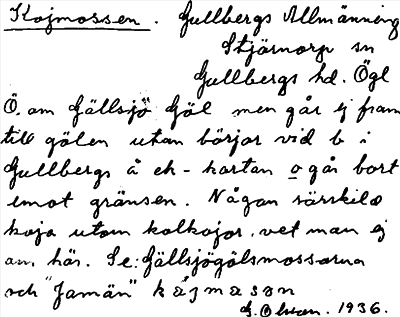 Kojmossen. Gullbergs Allmänning
Stjärnorp sn
Gullbergs hd. Ögl
Ö. om Gällsjö Göl men går ej fram
till gölen utan börjar vid b i
Gullbergs å ek-kartan o går bort
emot gränsen. Någon särskild
koja utom kolkojor, vet man ej
av, här. Se: Gällsjögölsmossarna
och "Jamän" kåjmasan
G. Olsson. 1936.